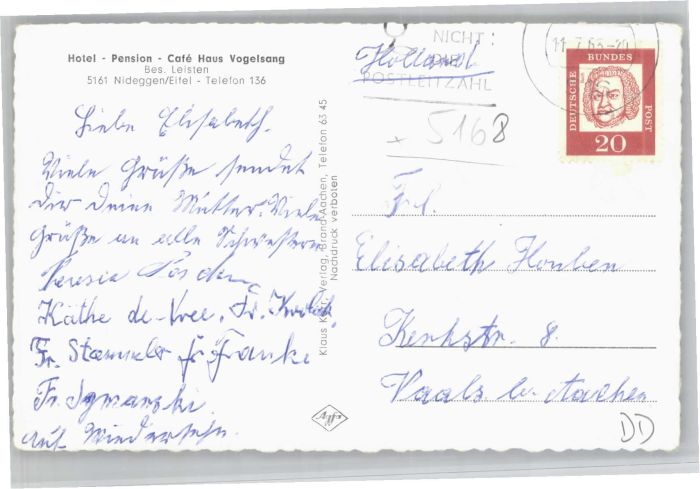 Hotel - Pension - Café Haus Vogelsang
Bes. Leisten
5161 Nideggen/Eifel - Telefon 136
Liebe Elisabeth.
Viele Grüße sendet
dir deine Mutter. Viele
Grüße an alle Schwestern
Käthe de-Vree. Fr.
Fr. Stammler Fr. Franke
Fr. Symanski
auf Wiedersehn.
Verlag, Brand-Aachen, Telefon 63 45
Nachdruck verboten
Holland
NICHT:
DIE
POSTLEITZAHL
x 5168
DEUTSCHE BUNDES POST
20
Frl.
Elisabeth Houben
Kerkstr. 8.
Vaals bei Aachen
DD